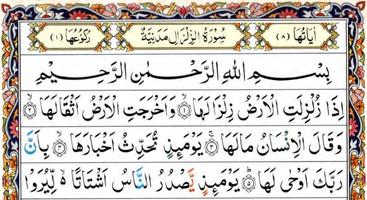 اٰيَاتُهَا (٨) سُوْرَةُ الزِّلْزَالِ مَدَنِيَّةٌ رُكُوْعُهَا (١)
بِسْمِ اللهِ الرَّحْمٰنِ الرَّحِيْمِ
اِذَا زُلْزِلَتِ الْاَرْضُ زِلْزَالَهَا ۝١ وَاَخْرَجَتِ الْاَرْضُ اَثْقَالَهَا ۝٢
وَقَالَ الْاِنْسَانُ مَالَهَا ۝٣ يَوْمَئِذٍ تُحَدِّثُ اَخْبَارَهَا ۝٤ بِاَنَّ
رَبَّكَ اَوْحٰى لَهَا ۝٥ يَوْمَئِذٍ يَّصْدُرُ النَّاسُ اَشْتَاتًا ە لِّيُرَوْا